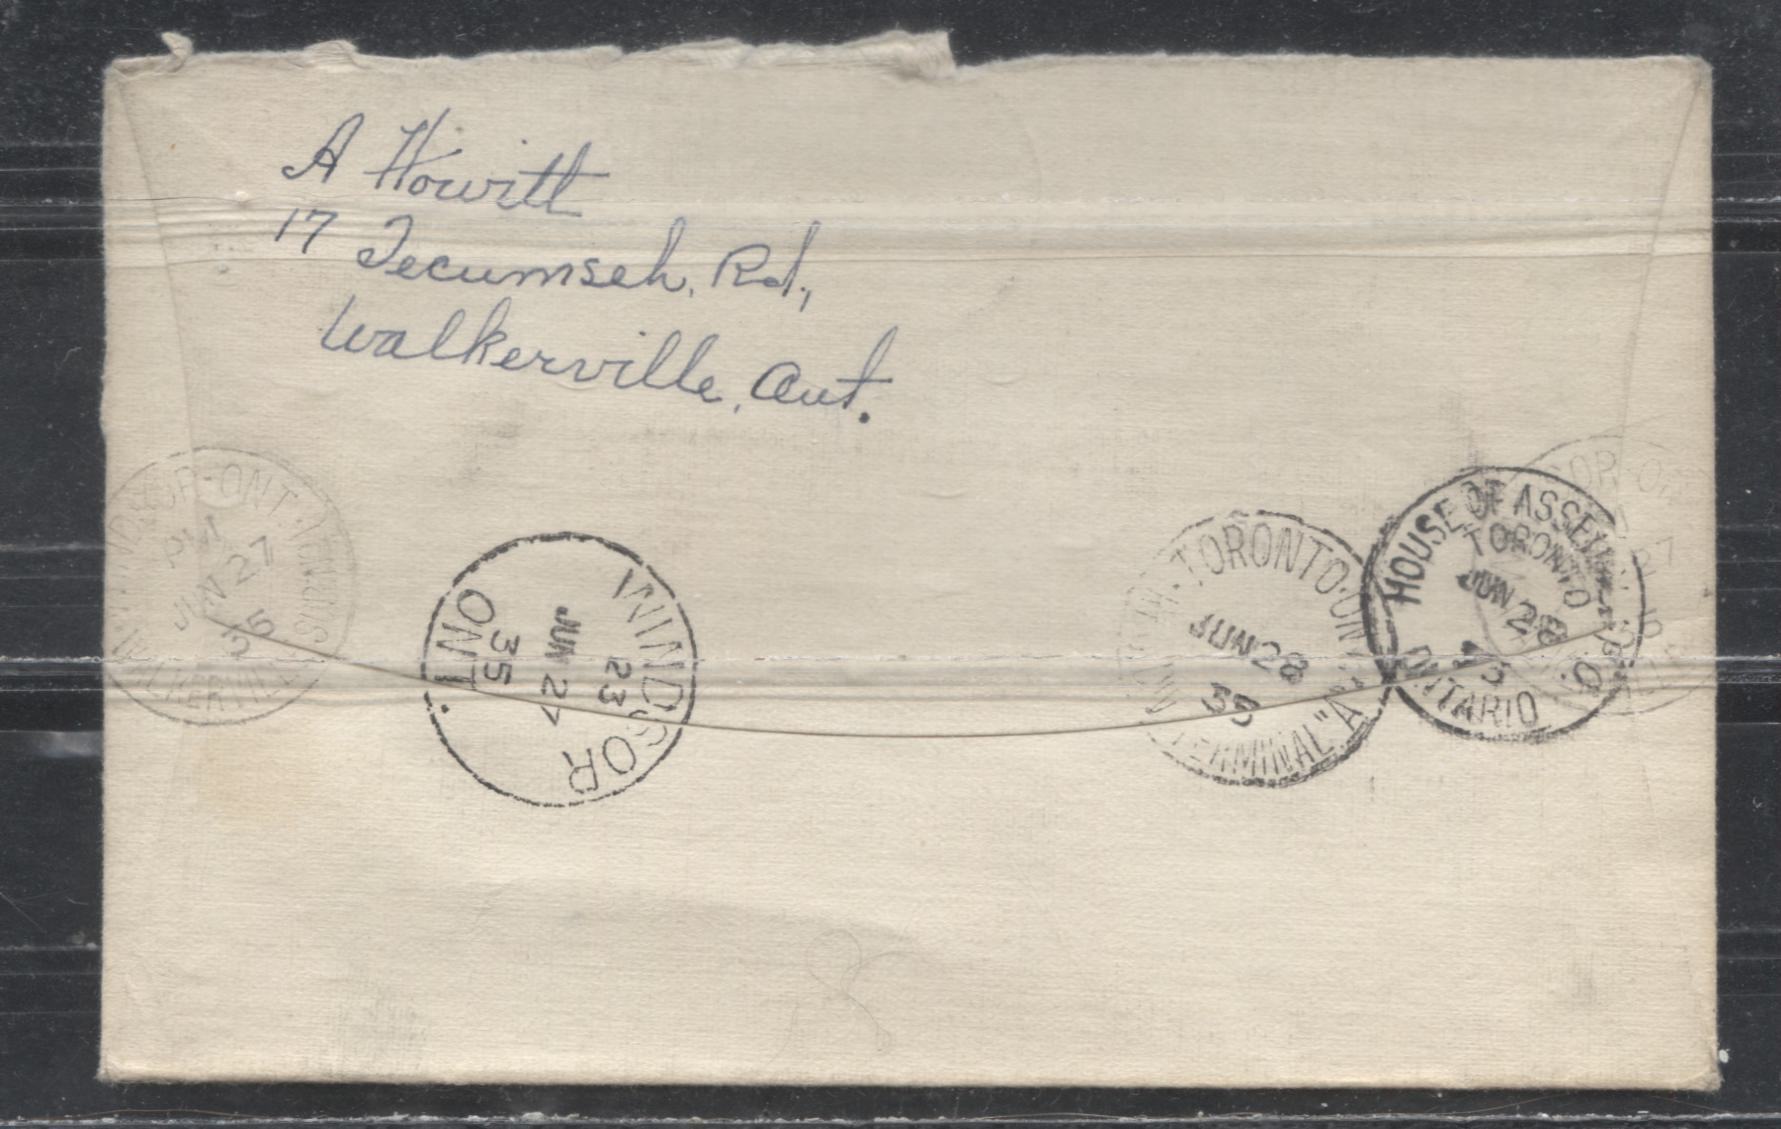 A Howitt
17 Tecumseh. Rd.,
Walkerville, Ont.
WINDSOR-ONT.
PM
JUN 27
35
WALKERVILLE
WINDSOR
23
JUN 27
35
ONT.
TORONTO-ONT
JUN 28
35
TERMINAL "A"
HOUSE OF ASSEMBLY P.O.
TORONTO
JUN 28
35
ONTARIO